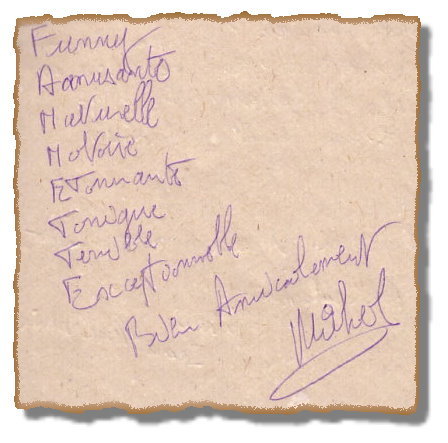 Funny
Amusante
Naturelle
Notoire
Etonnante
Tonique
Terrible
Exceptionnelle
Bien Amicalement
Michel